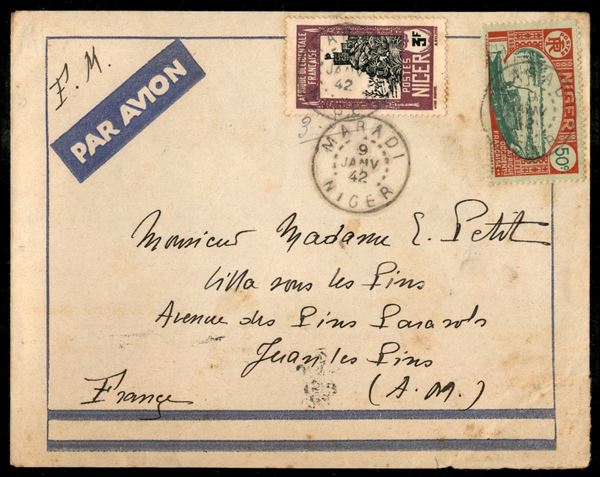 F. M.
PAR AVION
AFRIQUE OCCIDENTALE
FRANÇAISE
POSTES
NIGER
3F
JANV
42
NIGER
50c
RF
AFRIQUE
OCCIDENTALE
FRANÇAISE
3
MARADI
9
JANV
42
NIGER
Monsieur Madame E. Petit
Villa sous les Pins
Avenue des Pins Parasols
Juan les Pins
France
(A. M.)